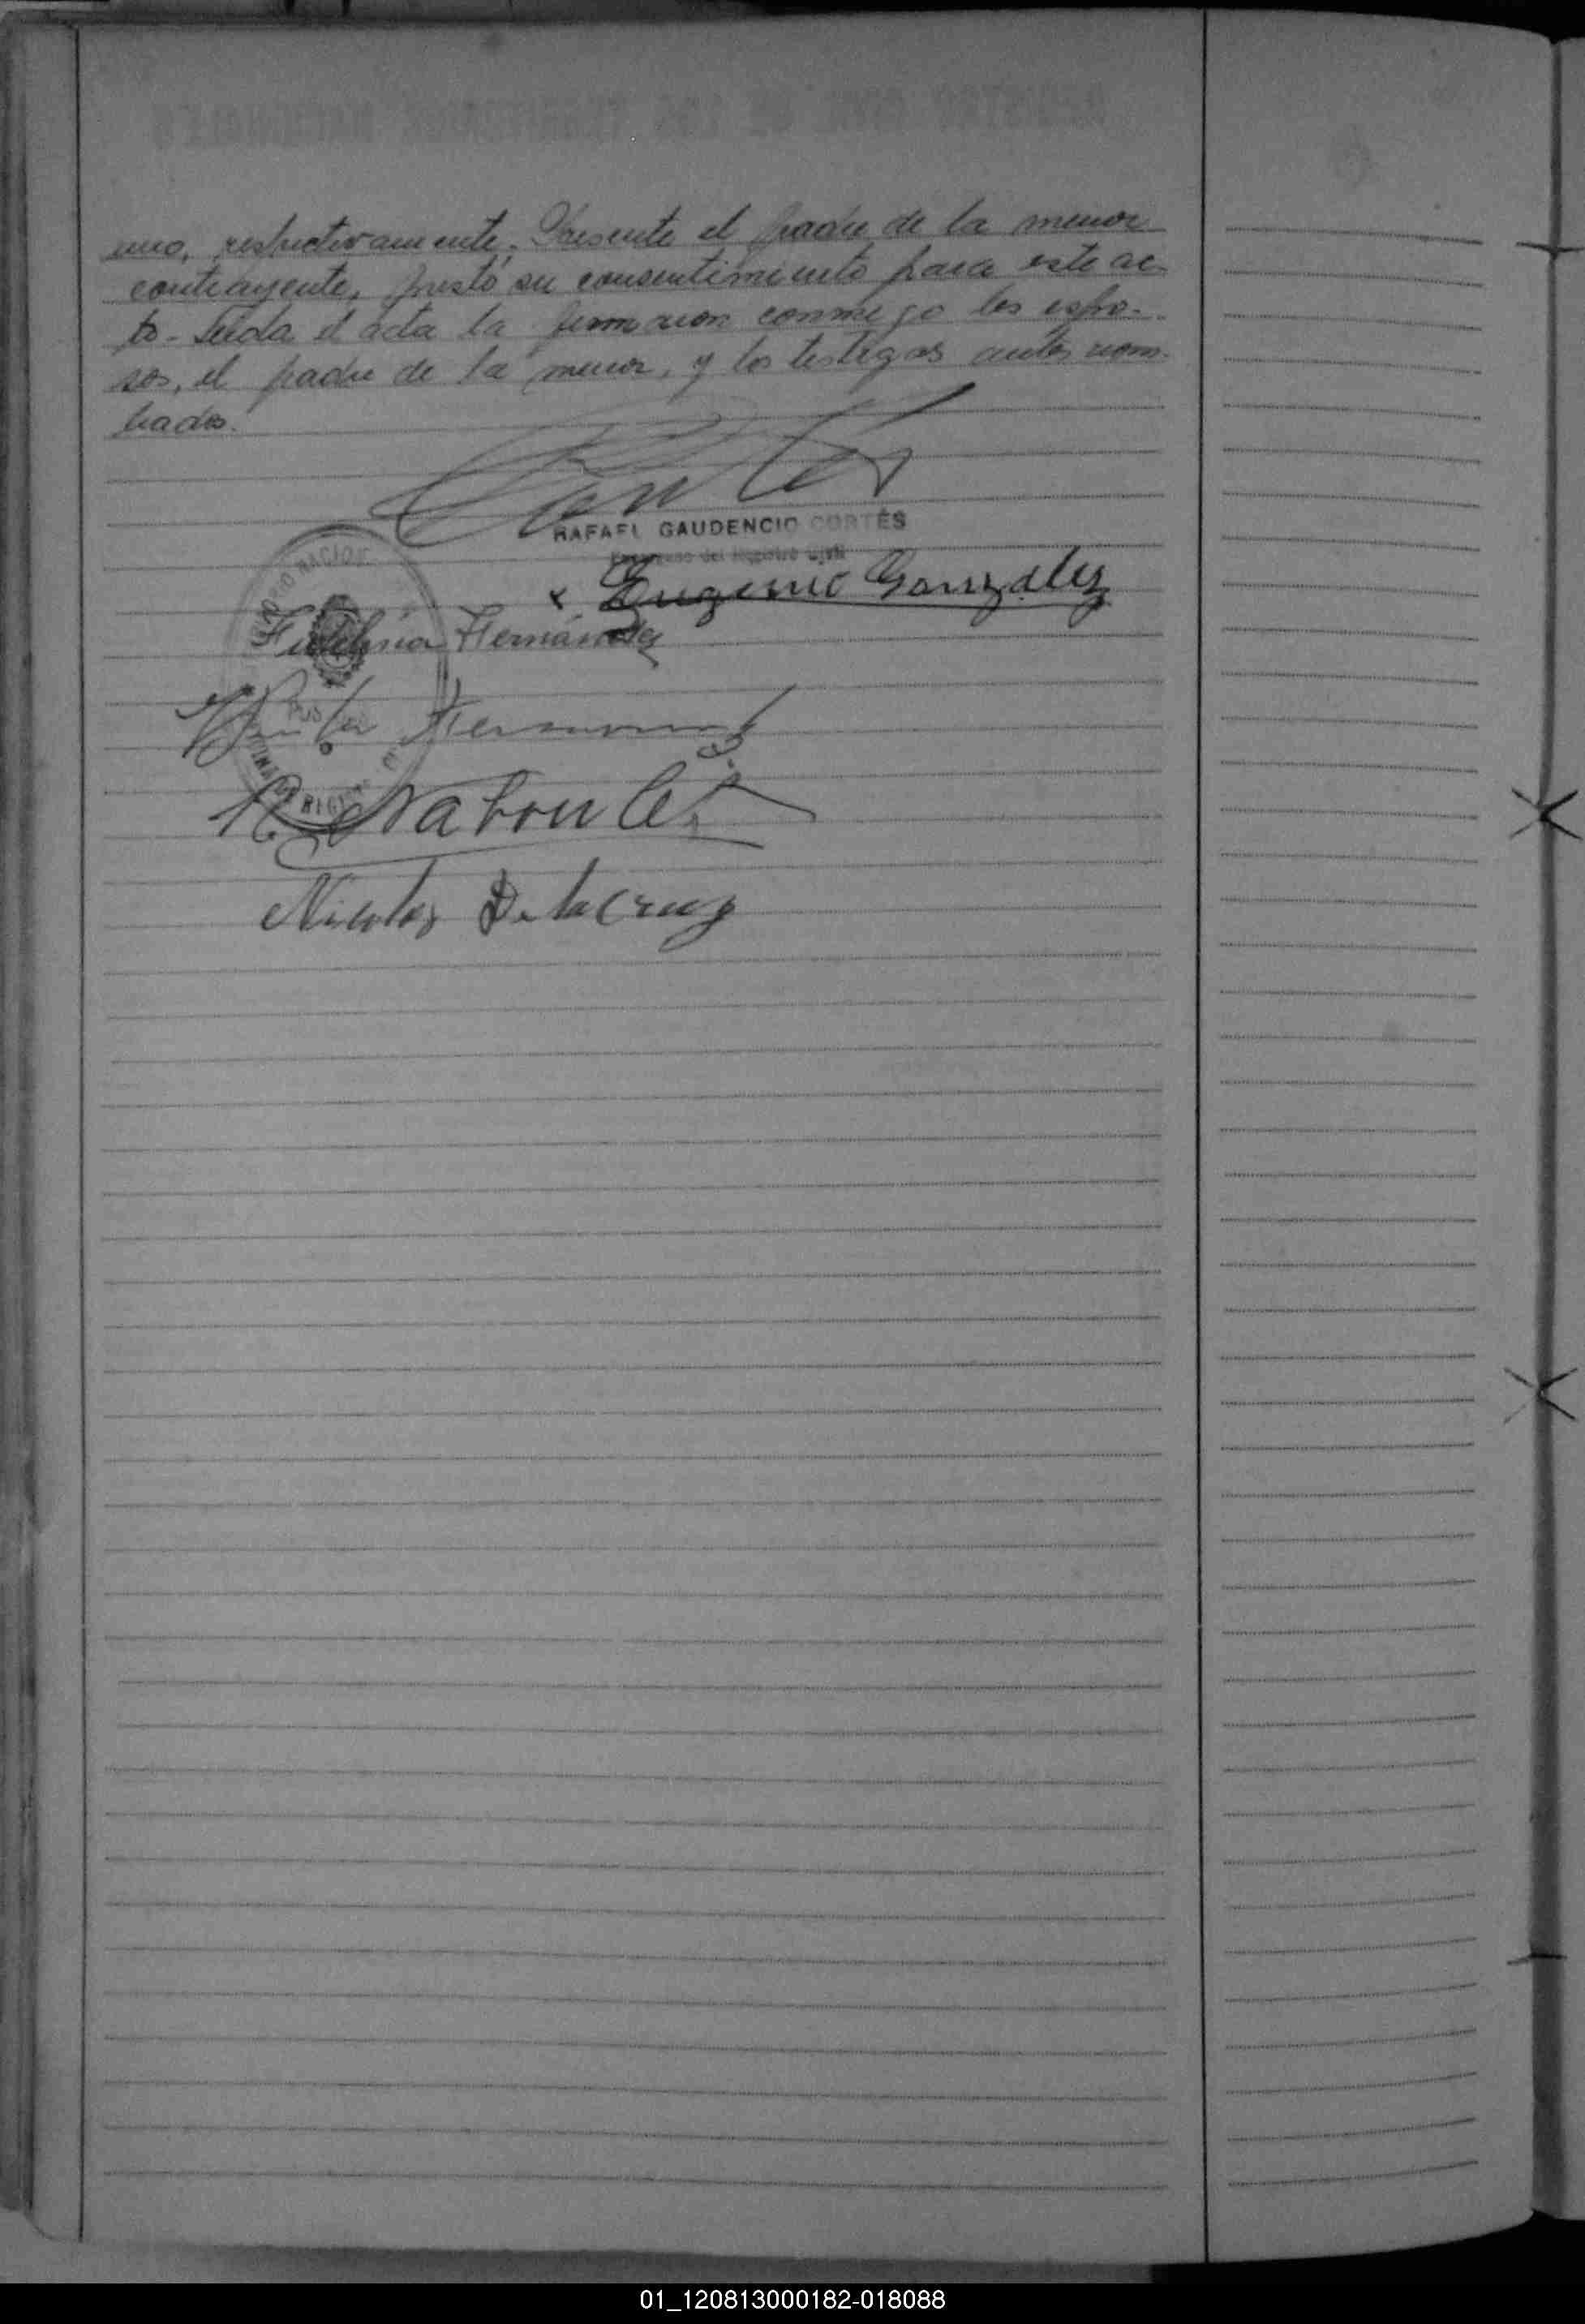 uno, respectivamente. Presente el padre de la menor
contrayente, prestó su consentimiento para este ac-
to - Leida el acta la firmaron conmigo los espo-
sos, el padre de la menor, y los testigos antes nom-
brados.
RAFAEL GAUDENCIO CORTÉS
Encargado del Registro Civil
x Eugenio Gonzalez
Fidelina Hernández
Hernandez
Nicolas De la Cruz
01_120813000182-018088